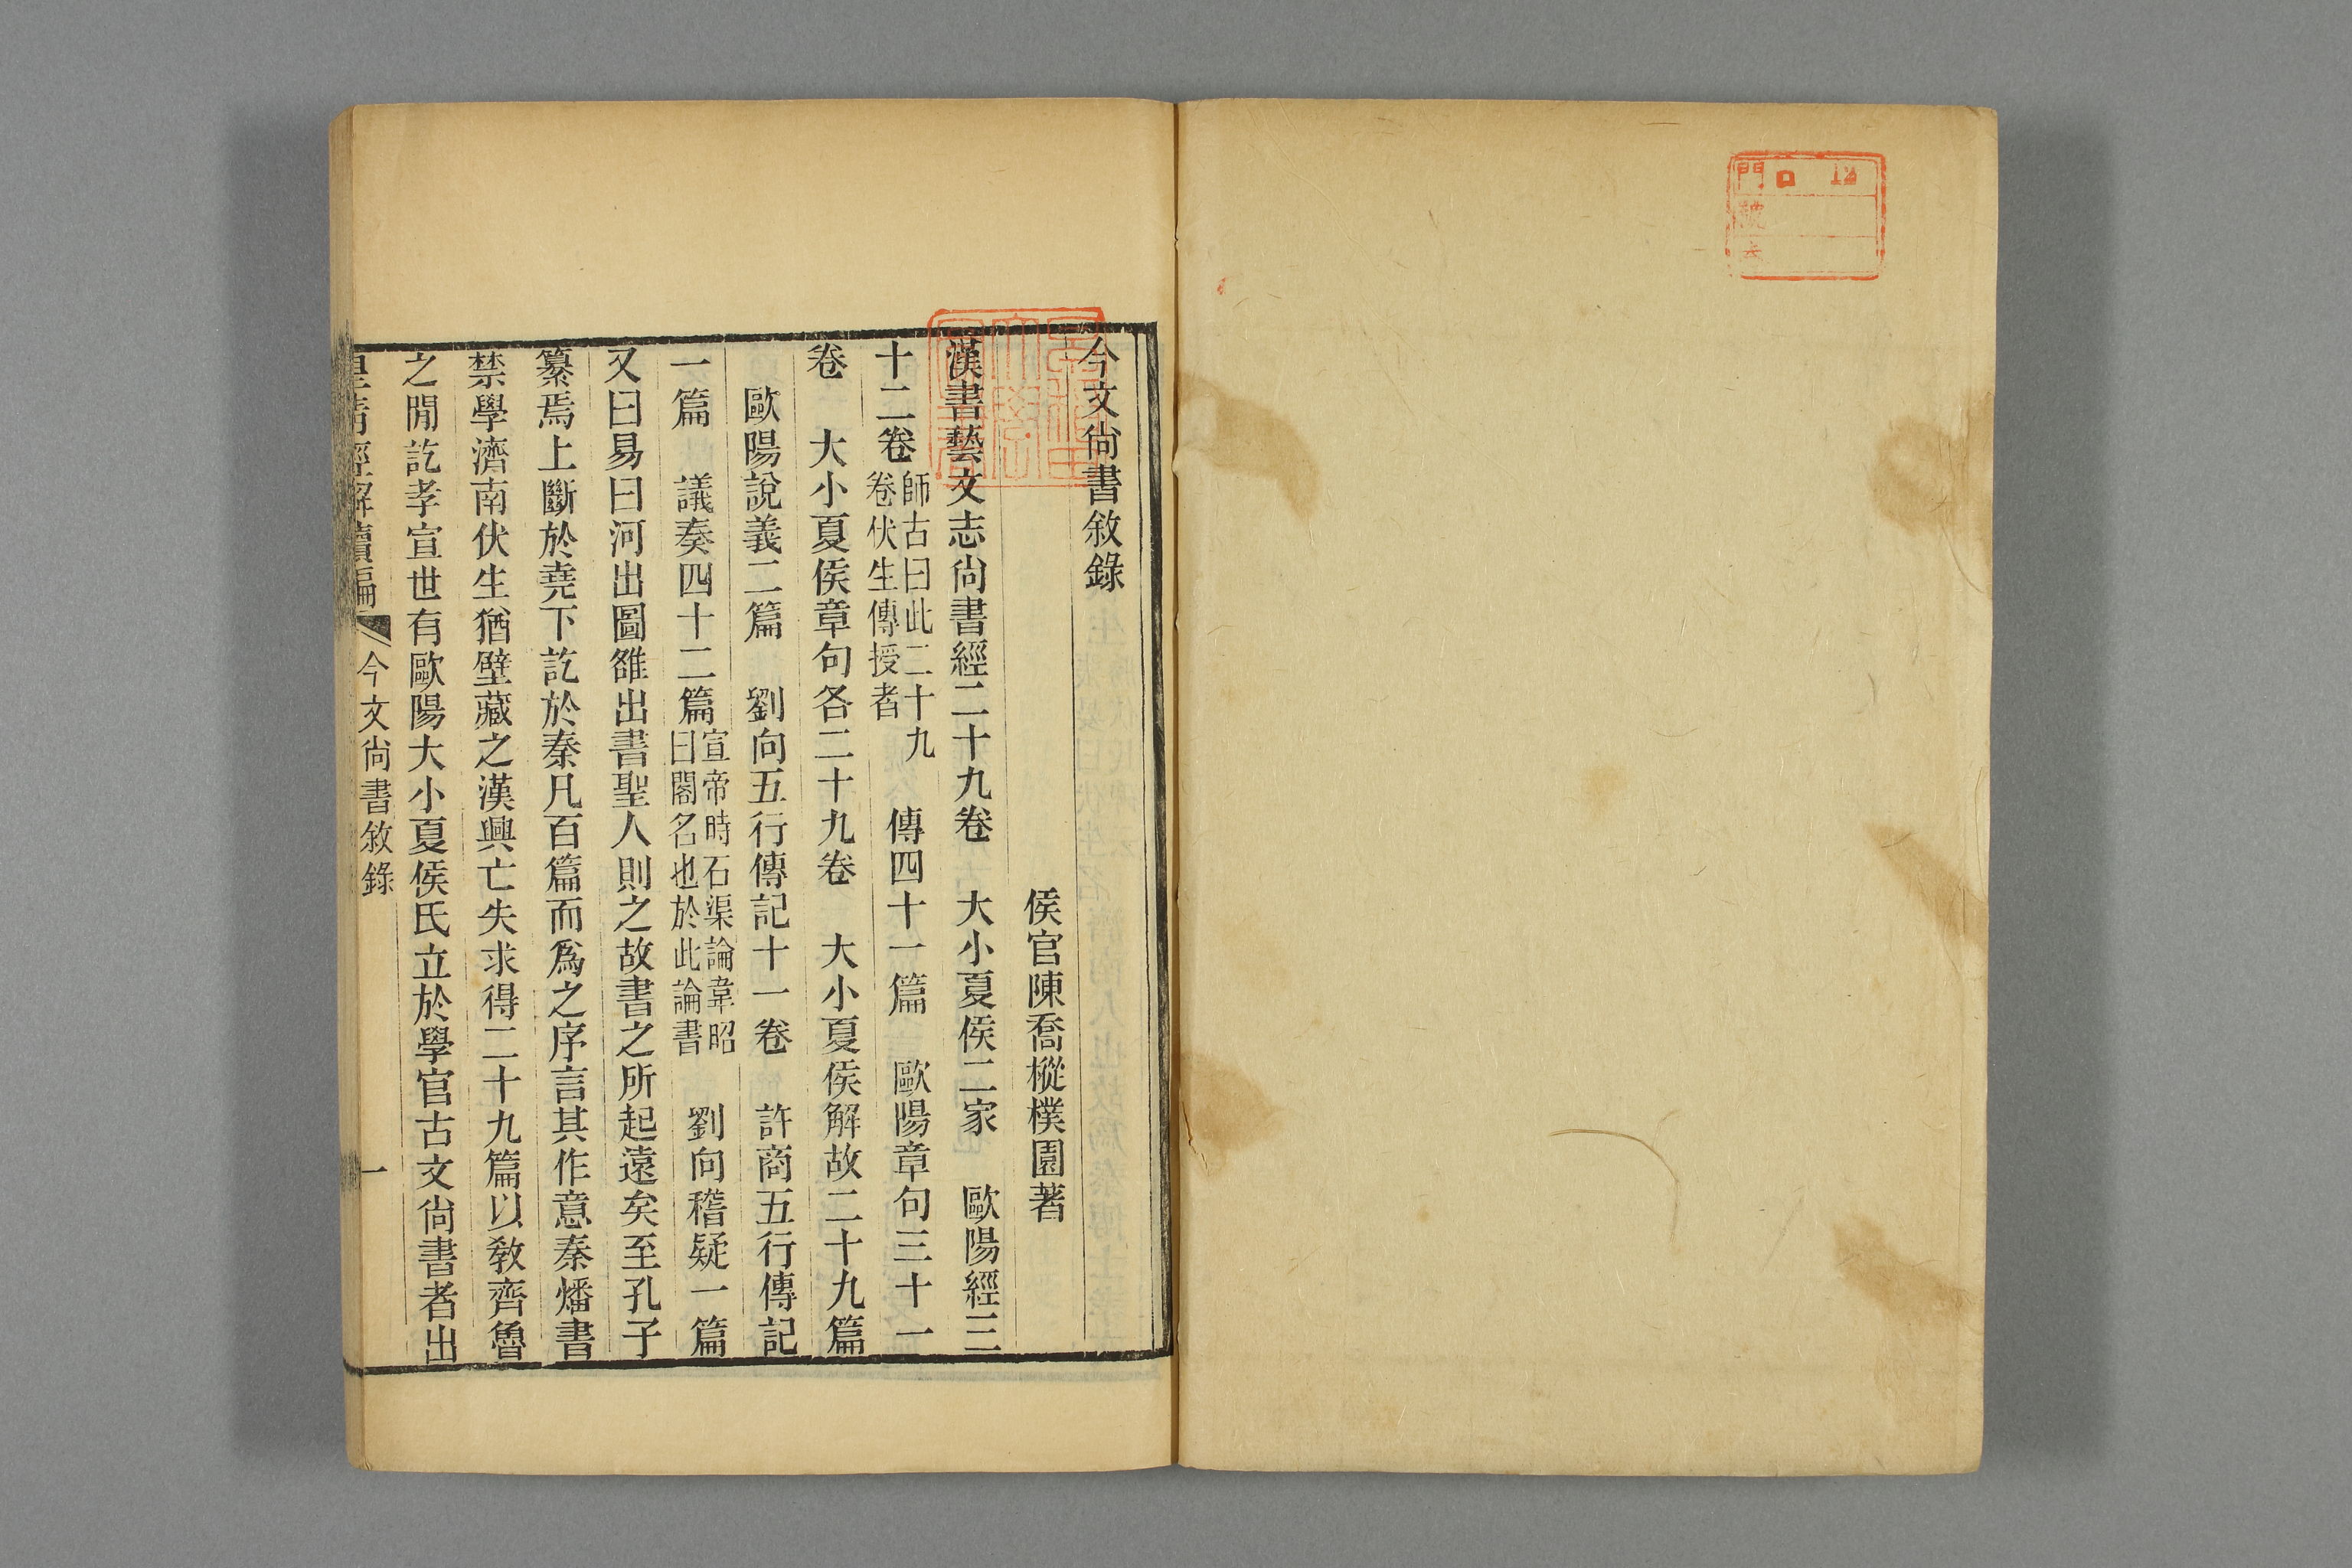 門 口 12
號
今文尙書敘錄
侯官陳喬樅樸園著
漢書藝文志尙書經二十九卷 大小夏侯二家 歐陽經三
十二卷 師古曰此二十九 卷伏生傳授者 傳四十一篇 歐陽章句三十一
卷 大小夏侯章句各二十九卷 大小夏侯解故二十九篇
歐陽說義二篇 劉向五行傳記十一卷 許商五行傳記
一篇 議奏四十二篇 宣帝時石渠論韋昭 曰閣名也於此論書 劉向稽疑一篇
又曰易曰河出圖雒出書聖人則之故書之所起遠矣至孔子
纂焉上斷於堯下訖於秦凡百篇而爲之序言其作意秦燔書
禁學濟南伏生猶壁藏之漢興亡失求得二十九篇以敎齊魯
之閒訖孝宣世有歐陽大小夏侯氏立於學官古文尙書者出
皇淸經解續編 今文尙書敘錄 一